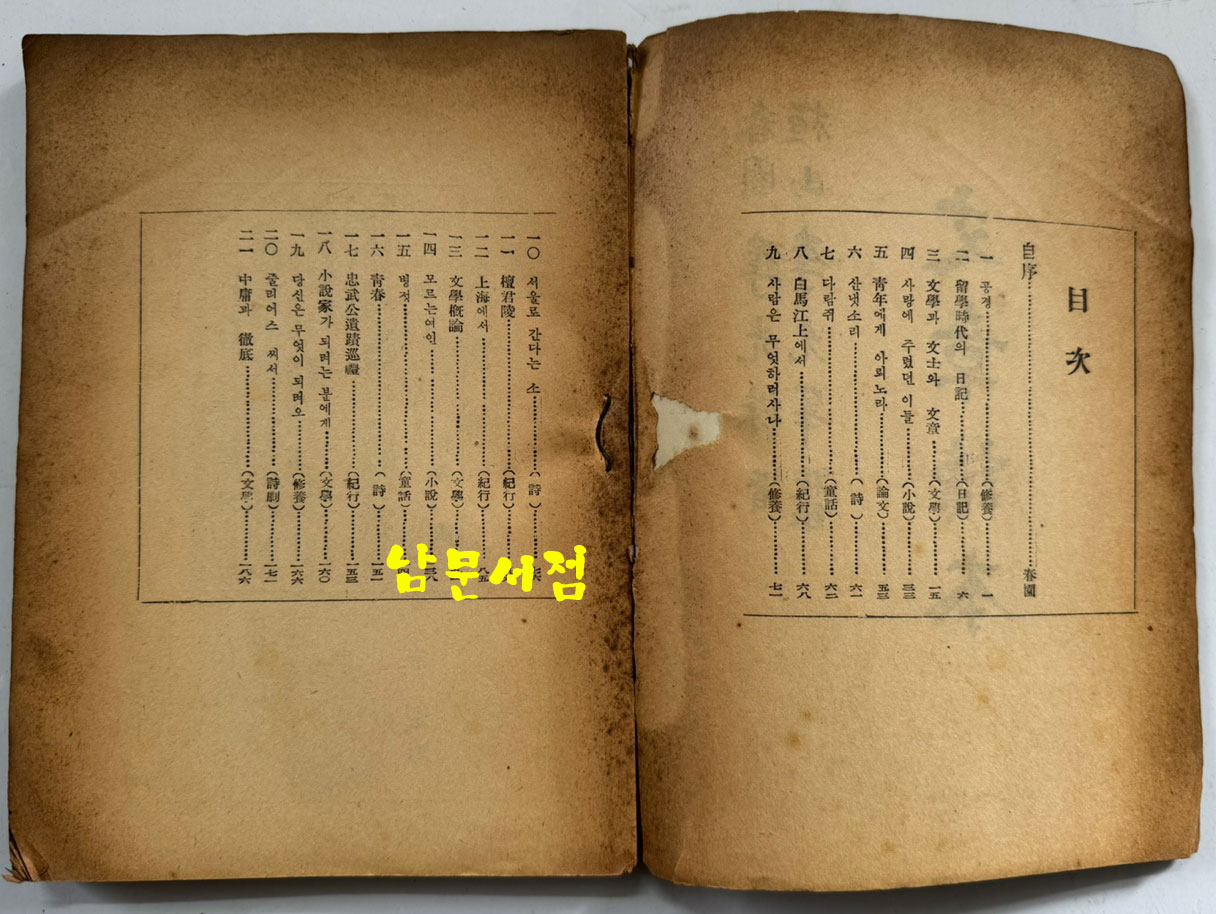 目次
自序 春園
一 공경 (修養) 一
二 留學時代의 日記 (日記) 六
三 文學과 文士와 文章 (文學) 一五
四 사랑에 주렸던 이들 (小說) 三三
五 靑年에게 아뢰노라 (論文) 五三
六 산냇소리 (詩) 六一
七 다람쥐 (童話) 六二
八 白馬江上에서 (紀行) 六八
九 사람은 무엇하러사나 (修養) 七一
一〇 서울로 간다는 소 (詩)
一一 檀君陵 (紀行)
一二 上海에서 (紀行) 八五
一三 文學槪論 (文學)
一四 모르는여인 (小說)
一五 멍젓 (童話)
一六 靑春 (詩) 五一
一七 忠武公遺蹟巡禮 (紀行) 一五三
一八 小說家가 되려는 분에게 (文學) 一六〇
一九 당신은 무엇이 되려오 (修養) 一六六
二〇 줄리어스 씨서 (詩劇) 一七一
二一 中庸과 徹底 (文學) 一八六
남문서점